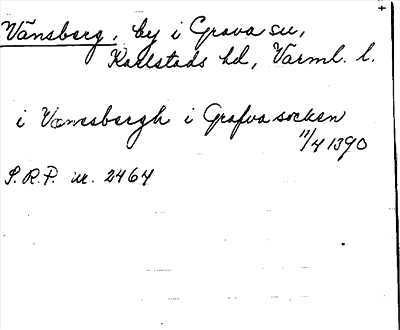 Vänsberg, by i Grava sn,
Karlstads hd, Värml. l.
i Vænesbergh i Grafva socken
11/4 1390
S.R.P. nr. 2464